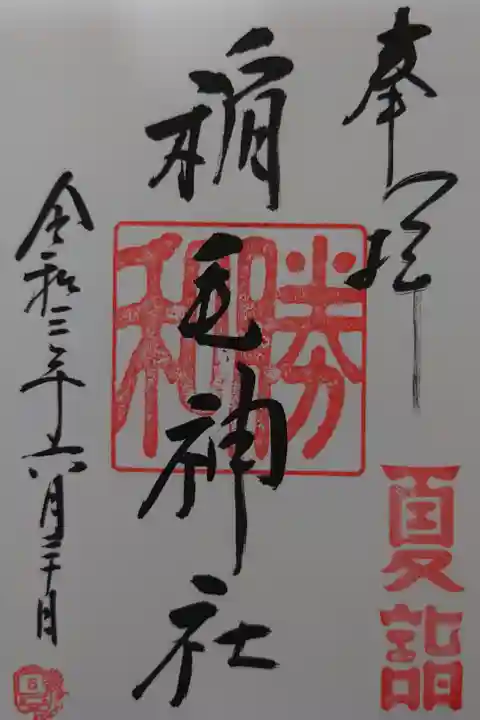 奉拝
夏詣
稲毛神社
勝和
令和三年六月三十日